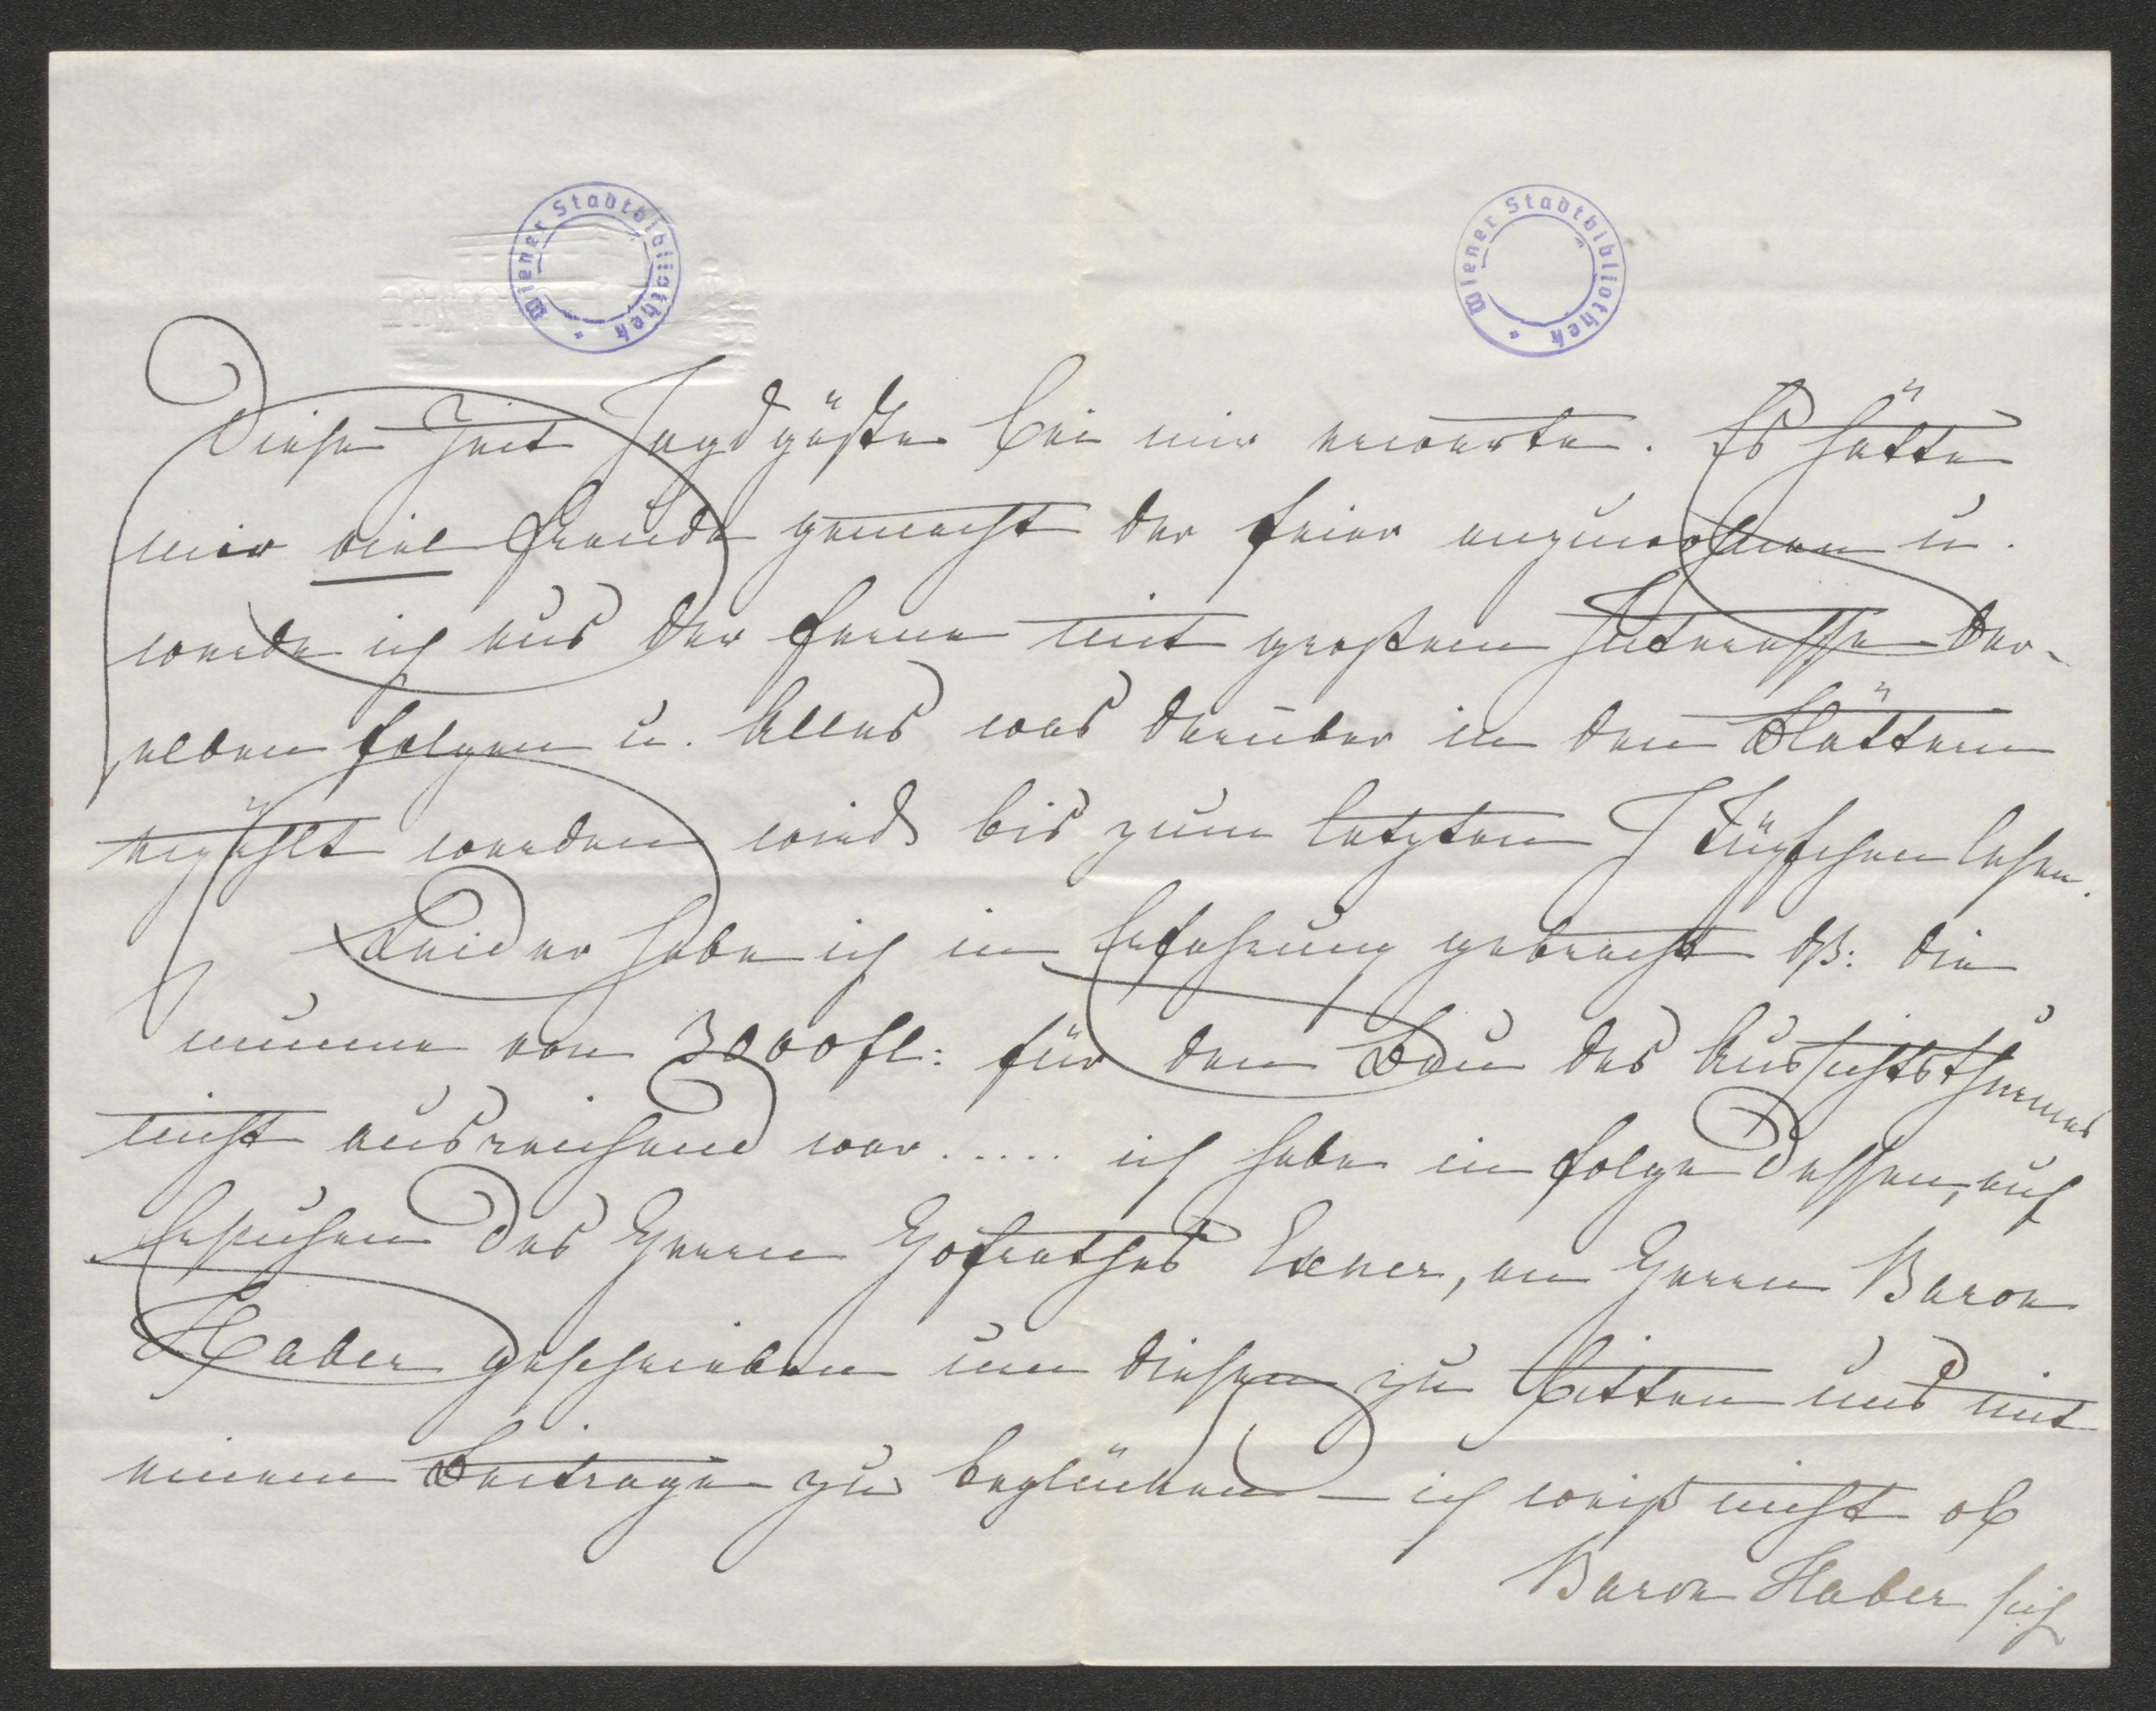 Wiener Stadtbibliothek
Wiener Stadtbibliothek
diese Zeit Jagdgäste bei mir erwarte. Es hätte
mir viel Freude gemacht der Feier anzuwohnen u.
werde ich aus der Ferne mit großem Interesse der-
selben folgen u. Alles was darüber in den Blättern
erzählt werden wird bis zum letzten I Tüpfchen lesen.
Leider habe ich in Erfahrung gebracht dß: die
Summe von 3000 fl: für den Bau des Aussichtsthurmes
nicht ausreichend war..... ich habe in Folge dessen, auf
Ersuchen des Herrn Hofrathes Exner, an Herrn Baron
Haber geschrieben um diesen zu bitten uns mit
einem Beitrage zu beglücken – ich weiß nicht ob
Baron Haber sich